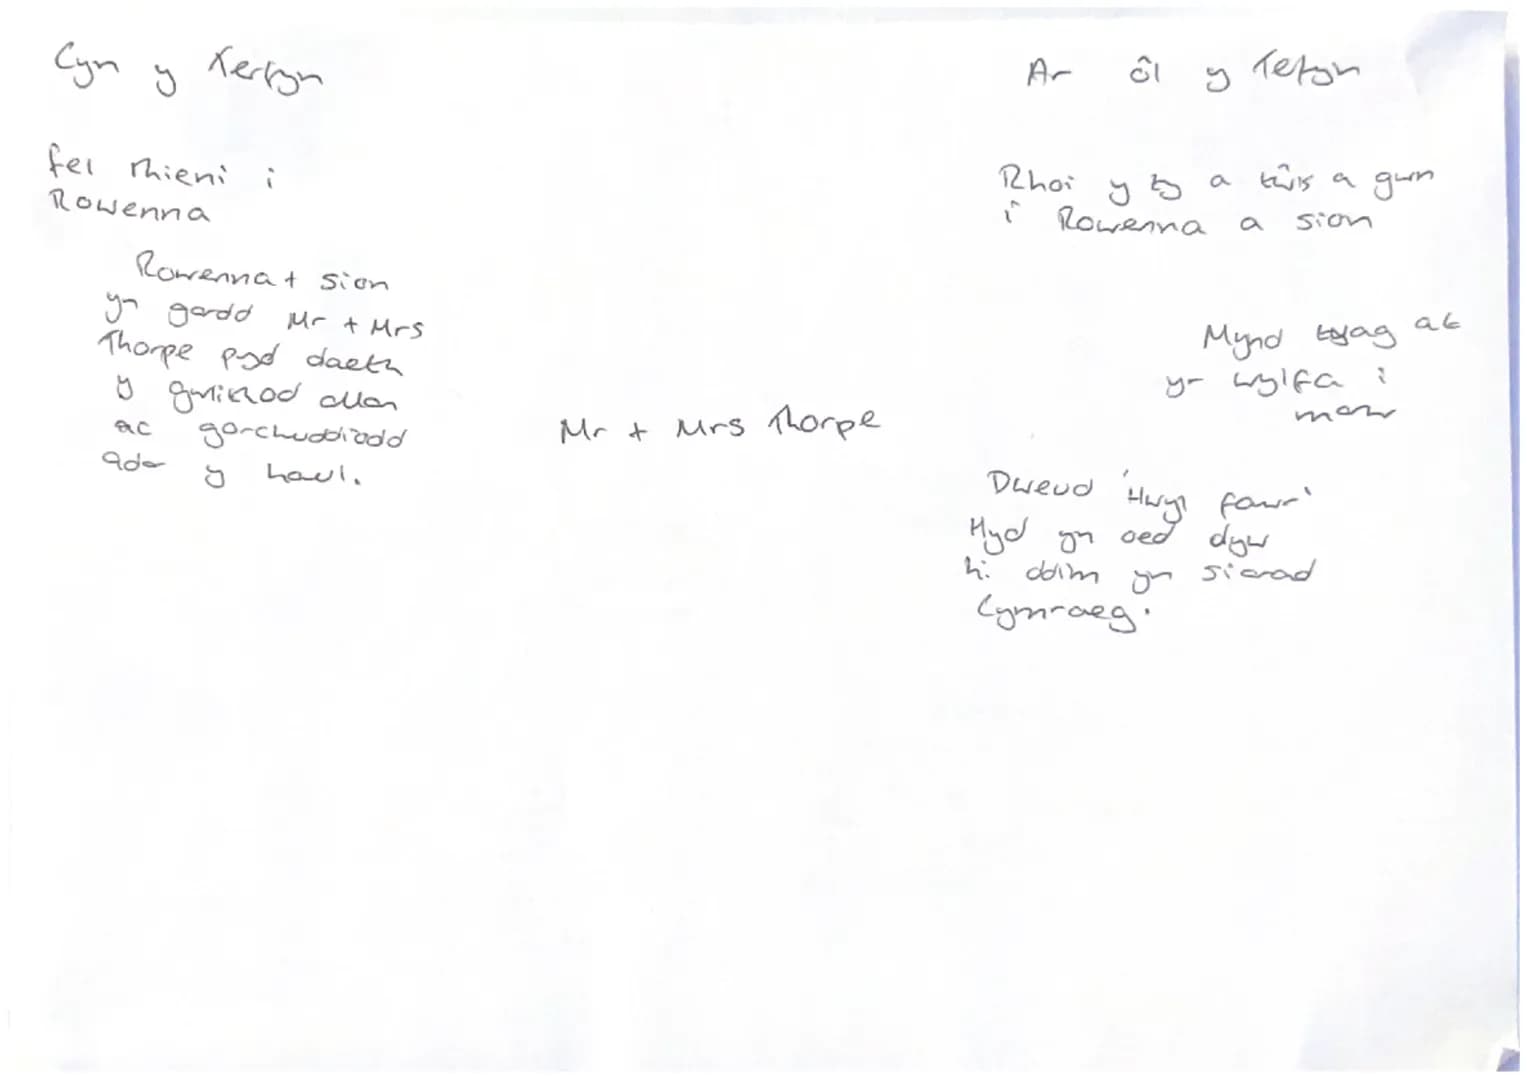 Cyn y Terfyn
fel rhieni i
Rowenna
Rowenna + sion
yn gardd Mr + Mrs
Thorpe pryd daeth
y gwmwl allan
ac gorchuddiodd
y haul.
Mr + Mrs Thorpe
Ar ôl y Tefyn
Rhoi y ty a a gwn
i Rowenna a sion
Mynd at
yr wylfa i
marw
Dweud 'Hwyl fawr'
Hyd yn oed dyw
hi ddim yn siarad
Cymraeg.